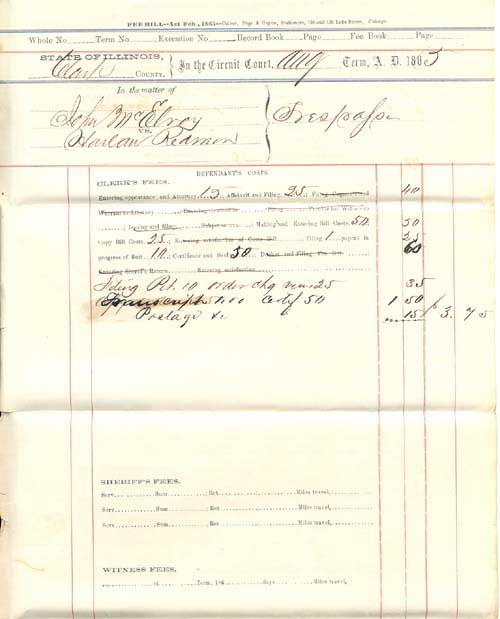 FEE BILL—Act Feb., 1865—Culver, Page & Hoyne, Stationers, 128 and 130 Lake Street, Chicago.
Whole No Term No Execution No Record Book Page Fee Book Page
STATE OF ILLINOIS,
Clark COUNTY.
In the Circuit Court, Aug Term, A. D. 1865
In the matter of
John McElroy
VS.
Harlan Redmon
Trespass
DEFENDANT'S COSTS.
CLERK'S FEES.
Entering appearance, and Attorney 15 Affidavit and Filing 25 ; Filing 40
; Issuing and filing ; Subpœnas ; Making and Entering Bill Costs, 50 50
Copy Bill Costs 25 ; Entering satisfaction of Costs ; Filing 1 papers in 25
progress of Suit 10 ; Certificate and Seal 50 ; Docket and Filing Fee 60
Entering Return, Entering satisfaction
Filing Pet. 10 order chg venu 25 35
Transcript 1.00 Certif 50 1 50
Postage &c 15 3. 75
SHERIFF'S FEES.
Serv Sum ; Ret Miles travel,
Serv Sum ; Ret Miles travel,
Serv Sum ; Ret Miles travel,
WITNESS FEES,
at Term, 186 days Miles travel,